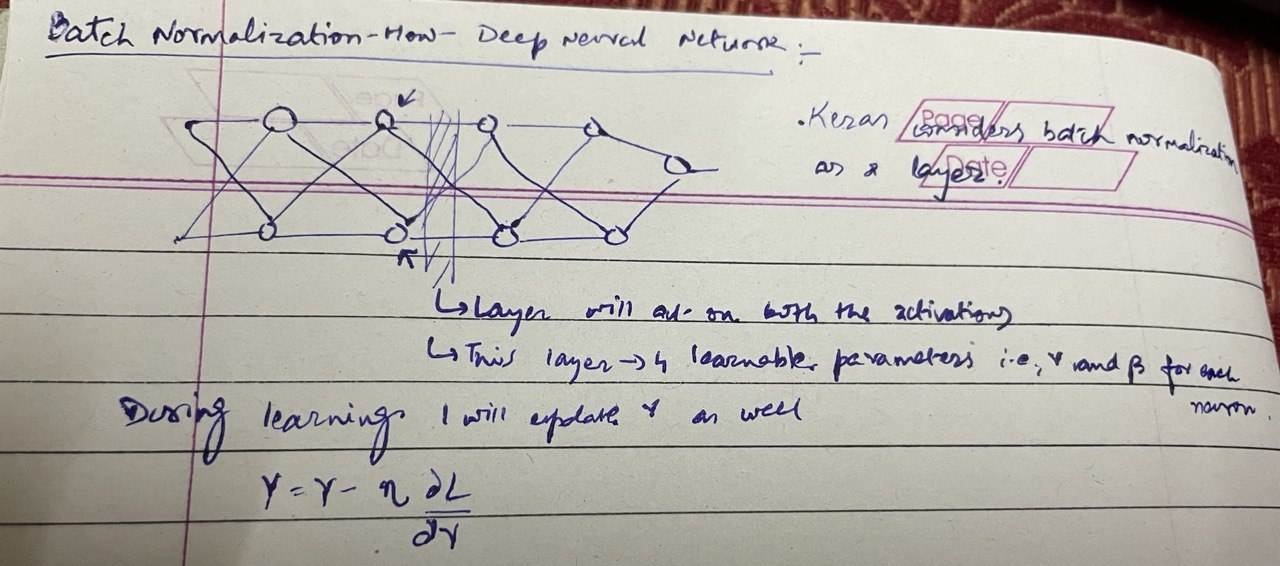 Batch Normalization-How- Deep Neural Network :-
.Keras considers batch normalization
as a layer.
Page
Date
↳ Layer will act on both the activations
↳ This layer → 4 learnable parameters i.e., γ and β for each
neuron.
During learning I will update γ as well
γ = γ - η ∂L
∂γ